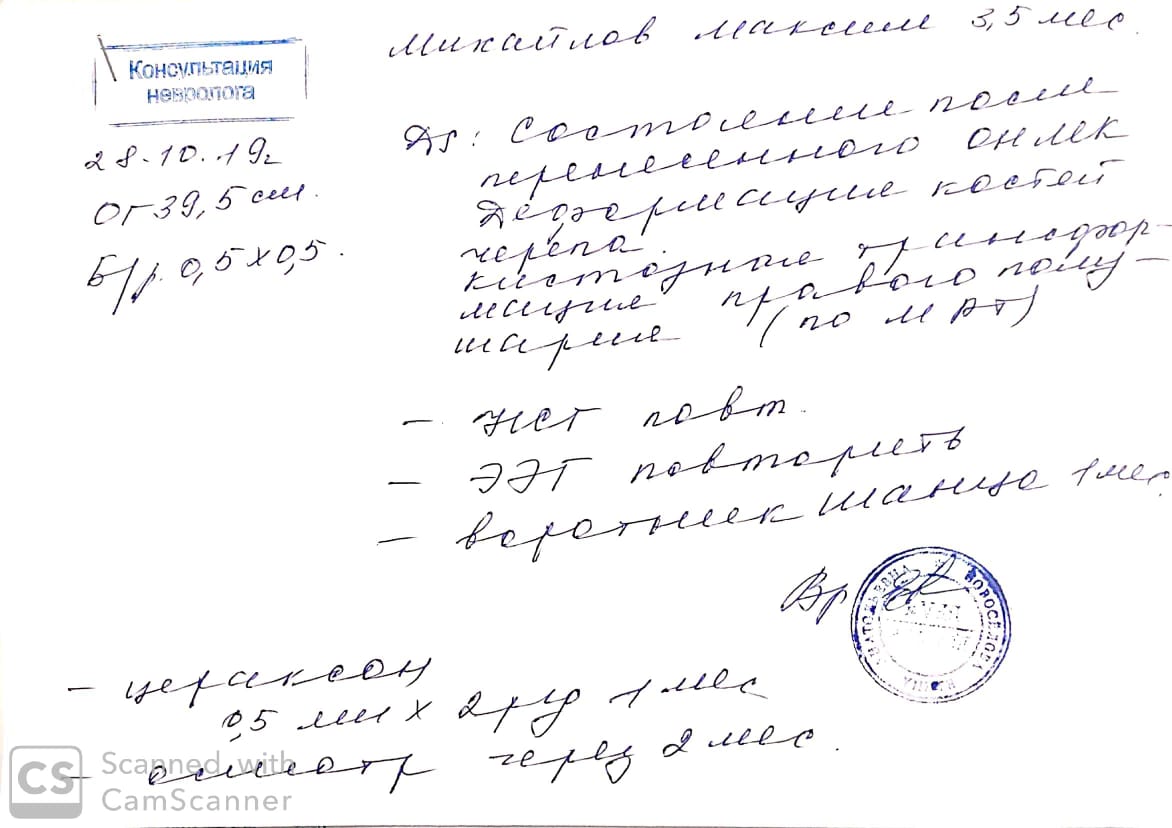 Консультация
невролога
28.10.19г
ОГ 39,5 см.
Б/р. 0,5 х 0,5.
Михайлов Максим 3,5 мес.
Ds: Состояние после
перенесенного ОНМК
Деформация костей
черепа.
кистозная трансфор-
мация правого полу-
шария (по МРТ)
- НСГ повт.
- ЭЭГ повторить
- воротник Шанца 1 мес.
Вр
НОВОСЕЛОВА
АНАТОЛЬЕВНА
- цераксон
0,5 мл х 2 р/д 1 мес
- осмотр через 2 мес.
CS
Scanned with
CamScanner